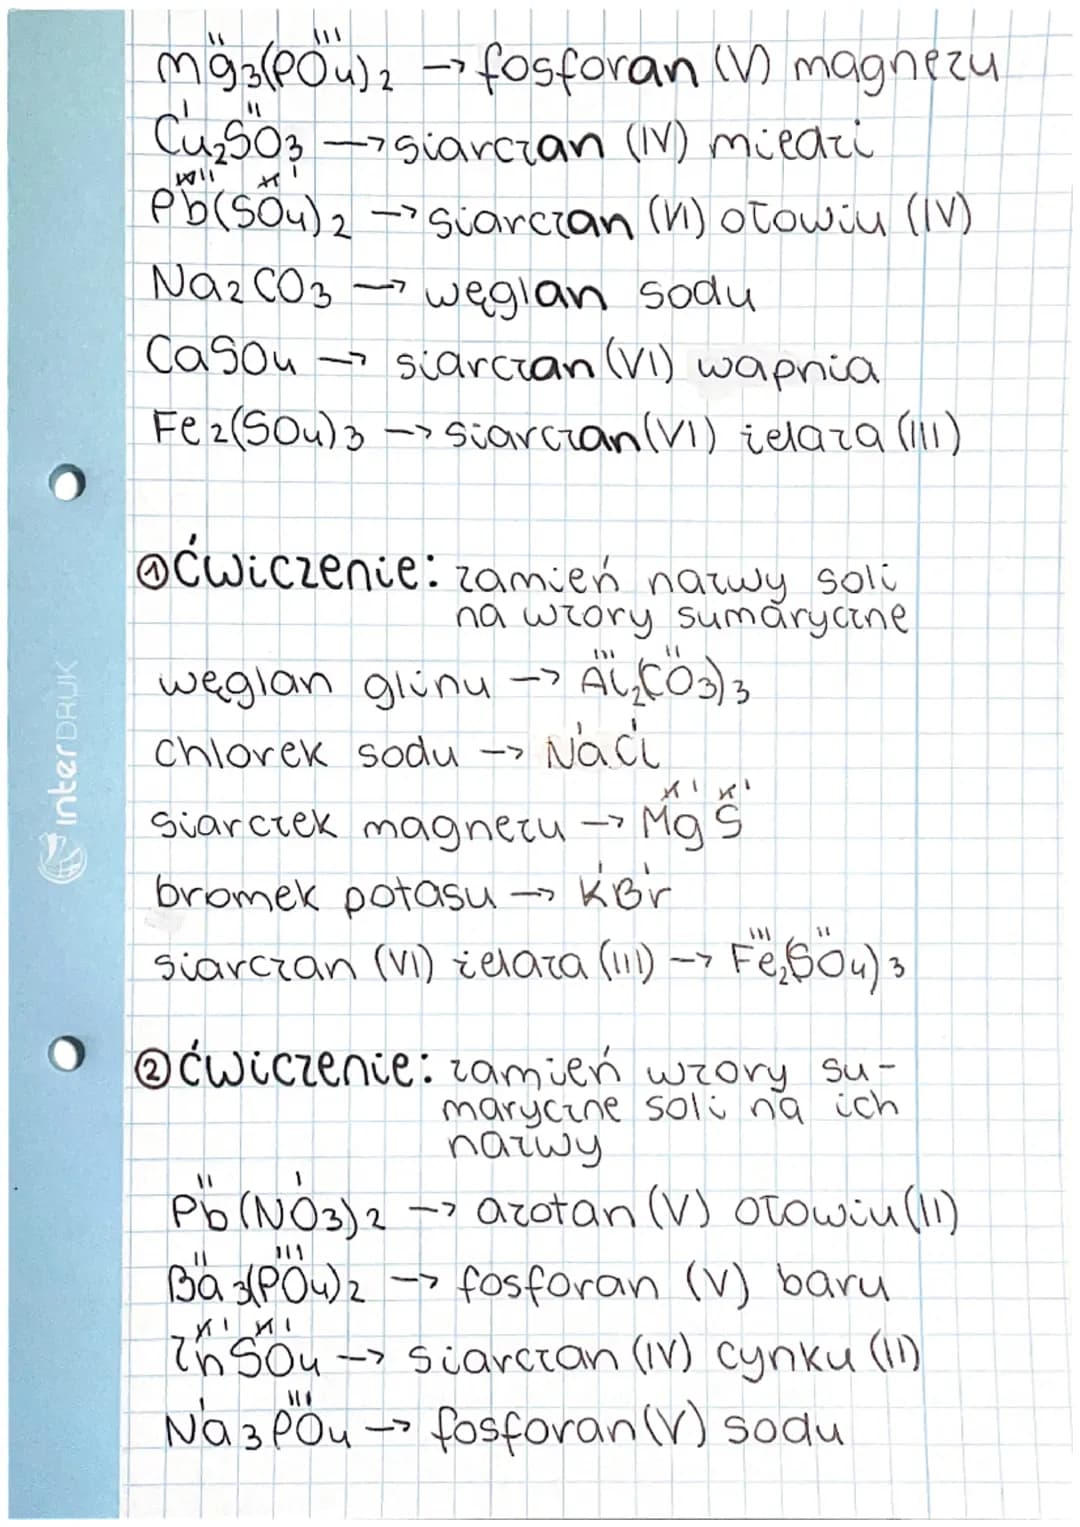 Mg3(PO4)2 → fosforan (V) magnezu
Cu2SO3 → siarczan (IV) miedzi
Pb(SO4)2 → siarczan (VI) ołowiu (IV)
Na2CO3 → węglan sodu
CaSO4 → siarczan (VI) wapnia
Fe2(SO4)3 → siarczan (VI) żelaza (III)
① Ćwiczenie: zamień nazwy soli
na wzory sumaryczne
węglan glinu → Al2(CO3)3
chlorek sodu → NaCl
siarczek magnezu → MgS
bromek potasu → KBr
siarczan (VI) żelaza (III) → Fe2(SO4)3
② Ćwiczenie: zamień wzory su-
maryczne soli na ich
nazwy
Pb(NO3)2 → azotan (V) ołowiu (II)
Ba3(PO4)2 → fosforan (V) baru
ZnSO4 → siarczan (IV) cynku (II)
Na3PO4 → fosforan (V) sodu
interDRUK